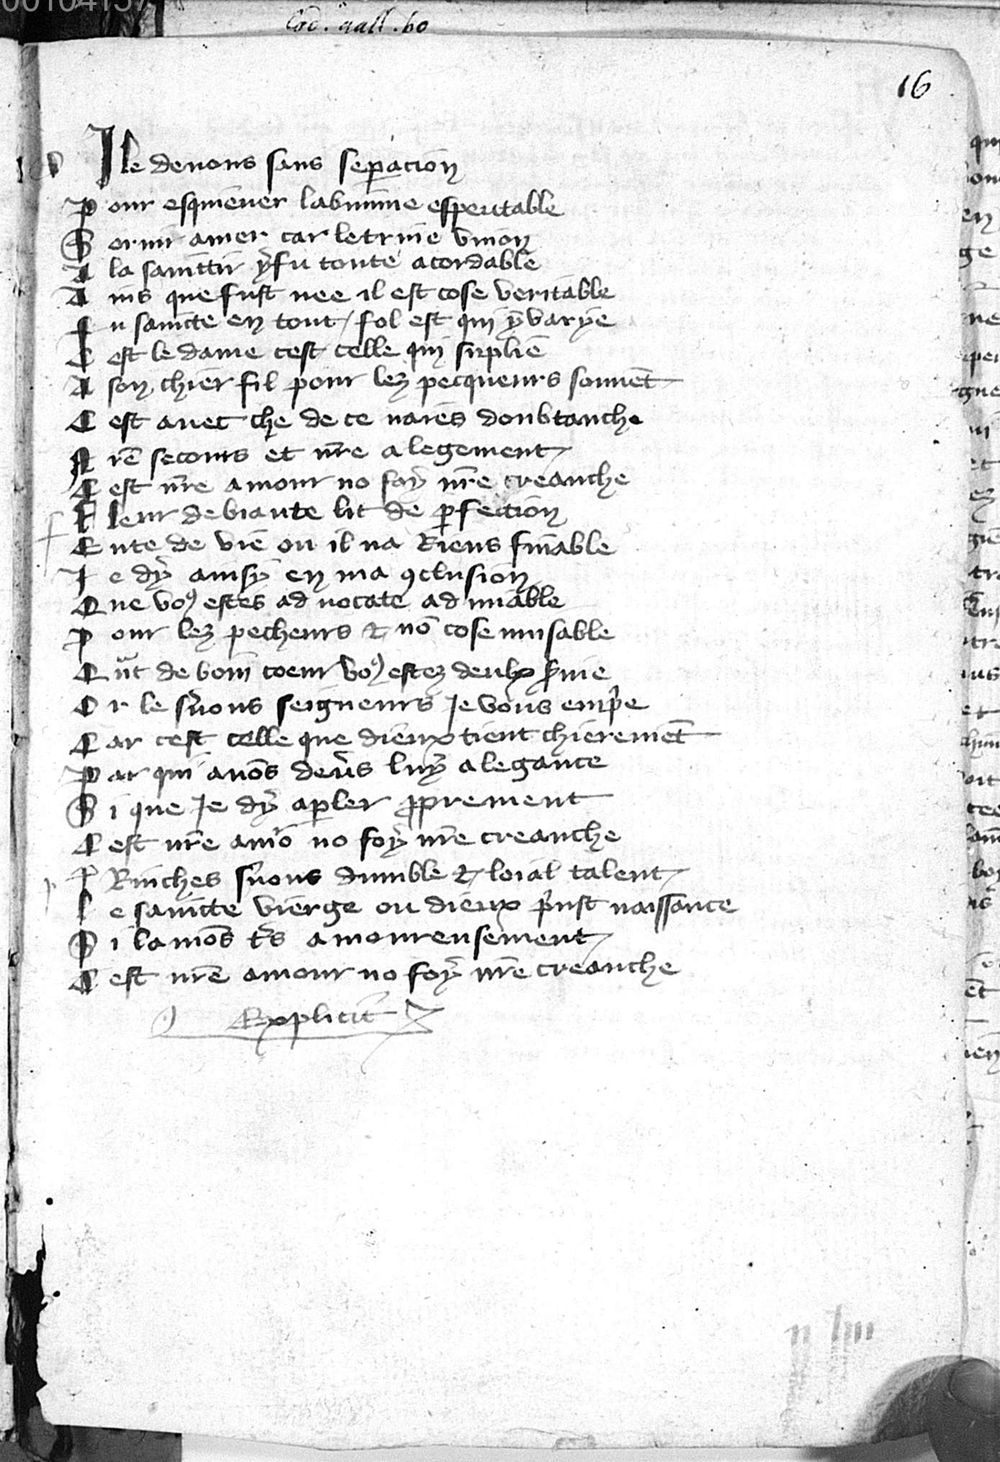 00104157
Cod. gall. 60
16
Ile deuons sans sepacion
Pour esquieuer labimme espeutable
Sormi amer car le trine vnion
A la saintir ẏ fu toute acordable
Ains que fust nee il est cose veritable
Fu saincte en tout / fol est qui ẏ varye
Cest le dame cest celle qui suplie
A son chier fil pour lez pecqueurs souuet
Cest auec che de ce naies doubtanche
Nrē secours et nrē alegement
Cest nrē amour no foẏ nrē creanche
Fleur de biaute lit de pfection
Ente de vie ou il na Riens finable
Je dẏ ainsẏ en ma ꝯclusion
Que voꝰ estes aduocate admiable
Pour lez pecheurs & nō cose muisable
Or le suons seigneurs Je vous emp̄e
Car cest celle que dieux tient chieremēt
Par qui auōs deūs luẏ alegance
Si que Je dẏ a pler pprement
Cest nrē amō no foẏ nrē creanche
Rinches suons dumble & loial talent
Le saincte vierge ou dieux p̄nst naissance
Si lamōs ts amoureusement
Cest nrē amour no foẏ nrē creanche
Explicit